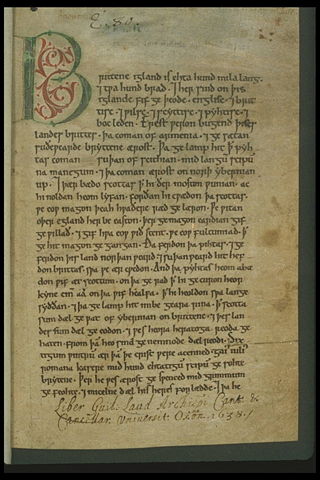 E. 80.
Brittene igland is ehta hund mila lang.
⁊ tƿa hund brad. ⁊ her sind on þis
iglande fif geþeode. englisc. ⁊ brit
tisc. ⁊ ƿilsc. ⁊ scyttisc. ⁊ pyhtisc. ⁊
boc leden. Erest ƿeron bugend þises
landes brittes. þa coman of armenia. ⁊ gesætan
suðeƿearde bryttene ærost. Þa gelamp hit ꝥ pyh
tas coman suþan of scithian. mid langū scipū
na manegum. ⁊ þa coman ærost on norþ ybernian
up. ⁊ þær bædo scottas ꝥ hi ðer moston ƿunian. ac
hi noldan heom lyfan. forðan hi cƿædon þa scottas.
ƿe eoƿ magon þeah hƿaðere ræd gelæron. Ƿe ƿitan
oþer egland her be easton. þer ge magon eardian gif
ge ƿillað. ⁊ gif hƿa eoƿ ƿiðstent. ƿe eoƿ fultumiað. ꝥ
ge hit magon gegangan. Ða ferdon þa pihtas. ⁊ ge
ferdon þis land norþanƿeard. ⁊ suþanƿeard hit hef
don brittas. sƿa ƿe ær cƿedon. And þa pyhtas heom abæ
don ƿif æt scottum. on þa gerad ꝥ hi gecuron heora
kyne cinn aa on þa ƿif healfa. ꝥ hi heoldon sƿa lange
syððan. ⁊ þa gelamp hit imbe geara rina. ꝥ scotta
sum dæl geƿat of ybernian on brittene. ⁊ þes lan
des sum dæl geeodon. ⁊ ƿes heora heratoga reoda ge
haten. from þā heo sind genemnode dælreodi. Six
tigum ƿintrum ær þā þe crist ƿere acenned. gaius iuliꝰ
romana kasere mid hund ehtatigum scipū gesohte
brytene. Þer he ƿes ærost gesƿenced mid grimmum
gefeohte. ⁊ micelne dæl his heres forlædde. Þa he
Liber Guil. Laud Archiepi Cant. &
Cancellar. Universit. Oxon. 1638.